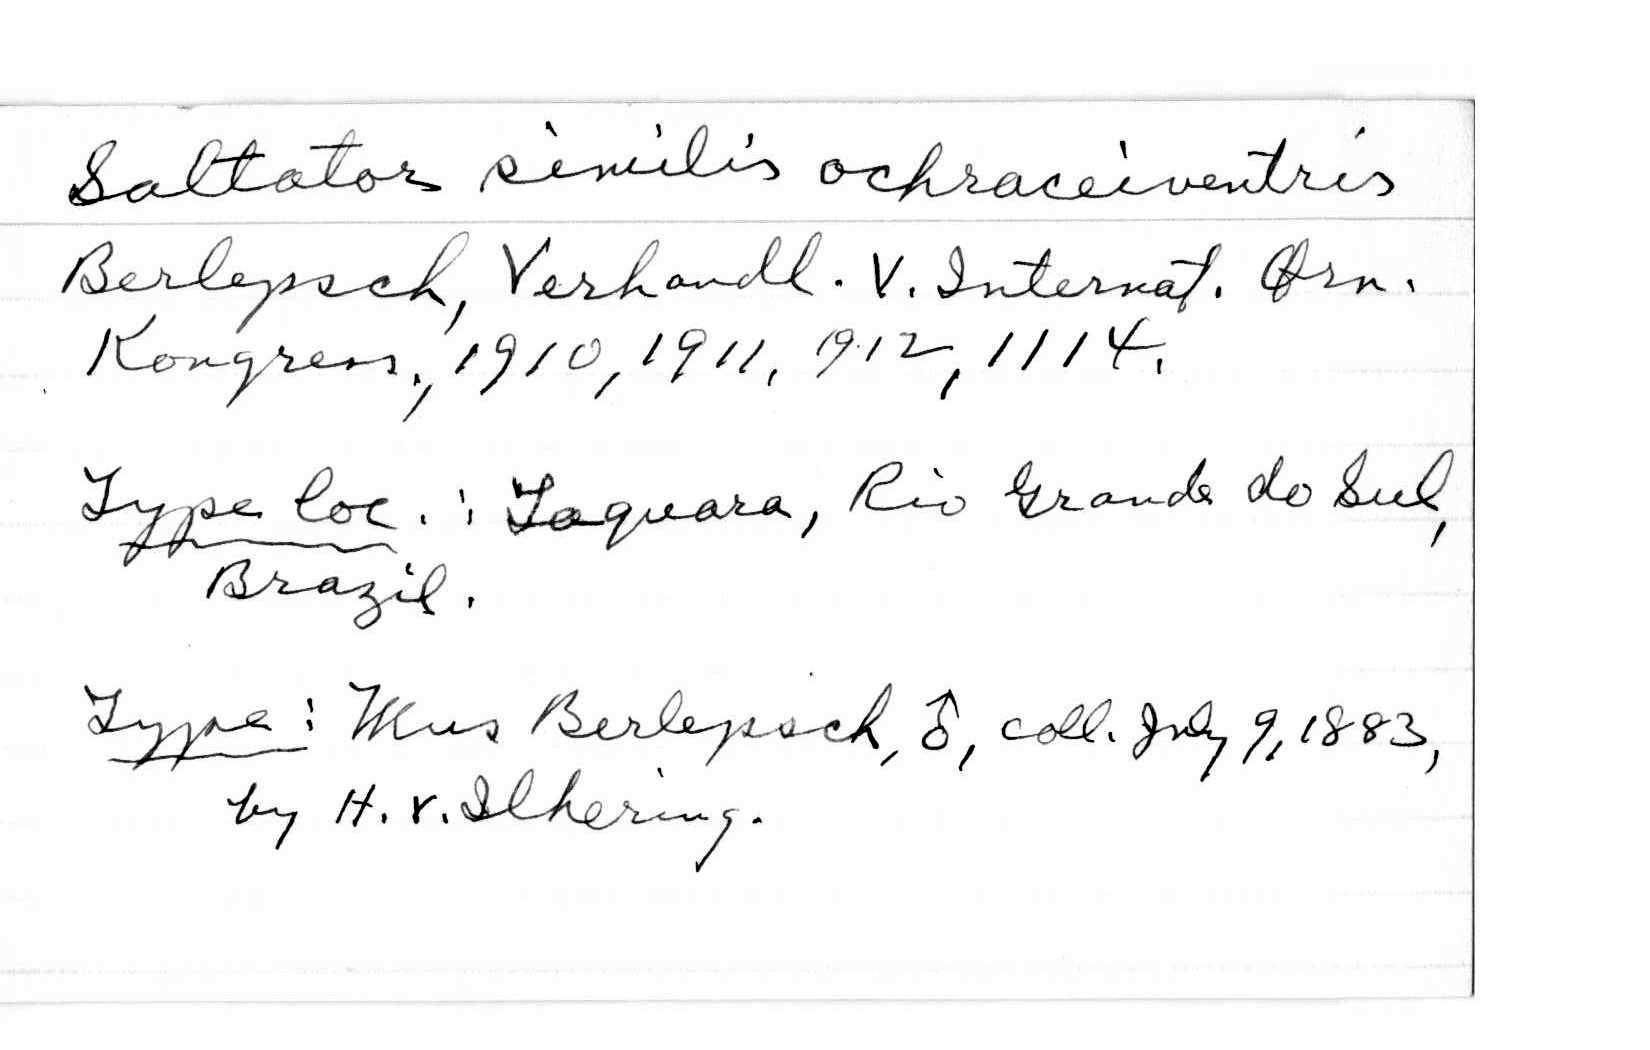 Saltator similis ochraceiventris
Berlepsch, Verhandl. V. Internat. Orn.
Kongress., 1910, 1911, 1912, 1114.
Type loc. : Taquara, Rio Grande do Sul,
Brazil.
Type : Mus Berlepsch, ♂, coll. July 9, 1883,
by H. v. Ihering.